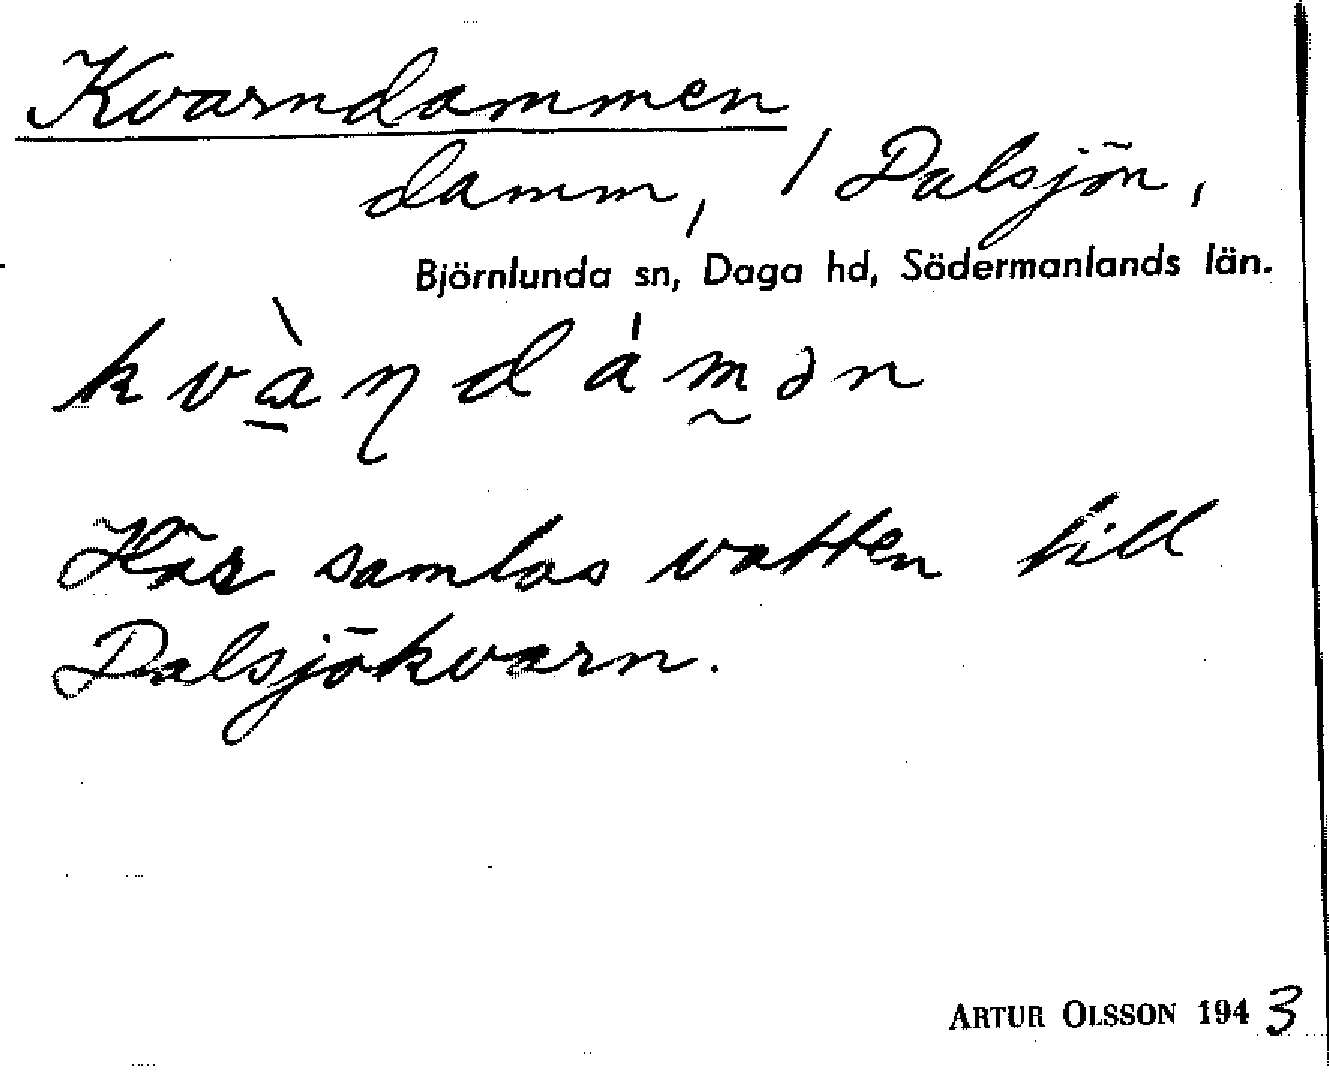 Kvarndammen
damm, / Dalsjön,
Björnlunda sn, Daga hd, Södermanlands län.
kvàɳdámən
Här samlas vatten till
Dalsjökvarn.
ARTUR OLSSON 1943